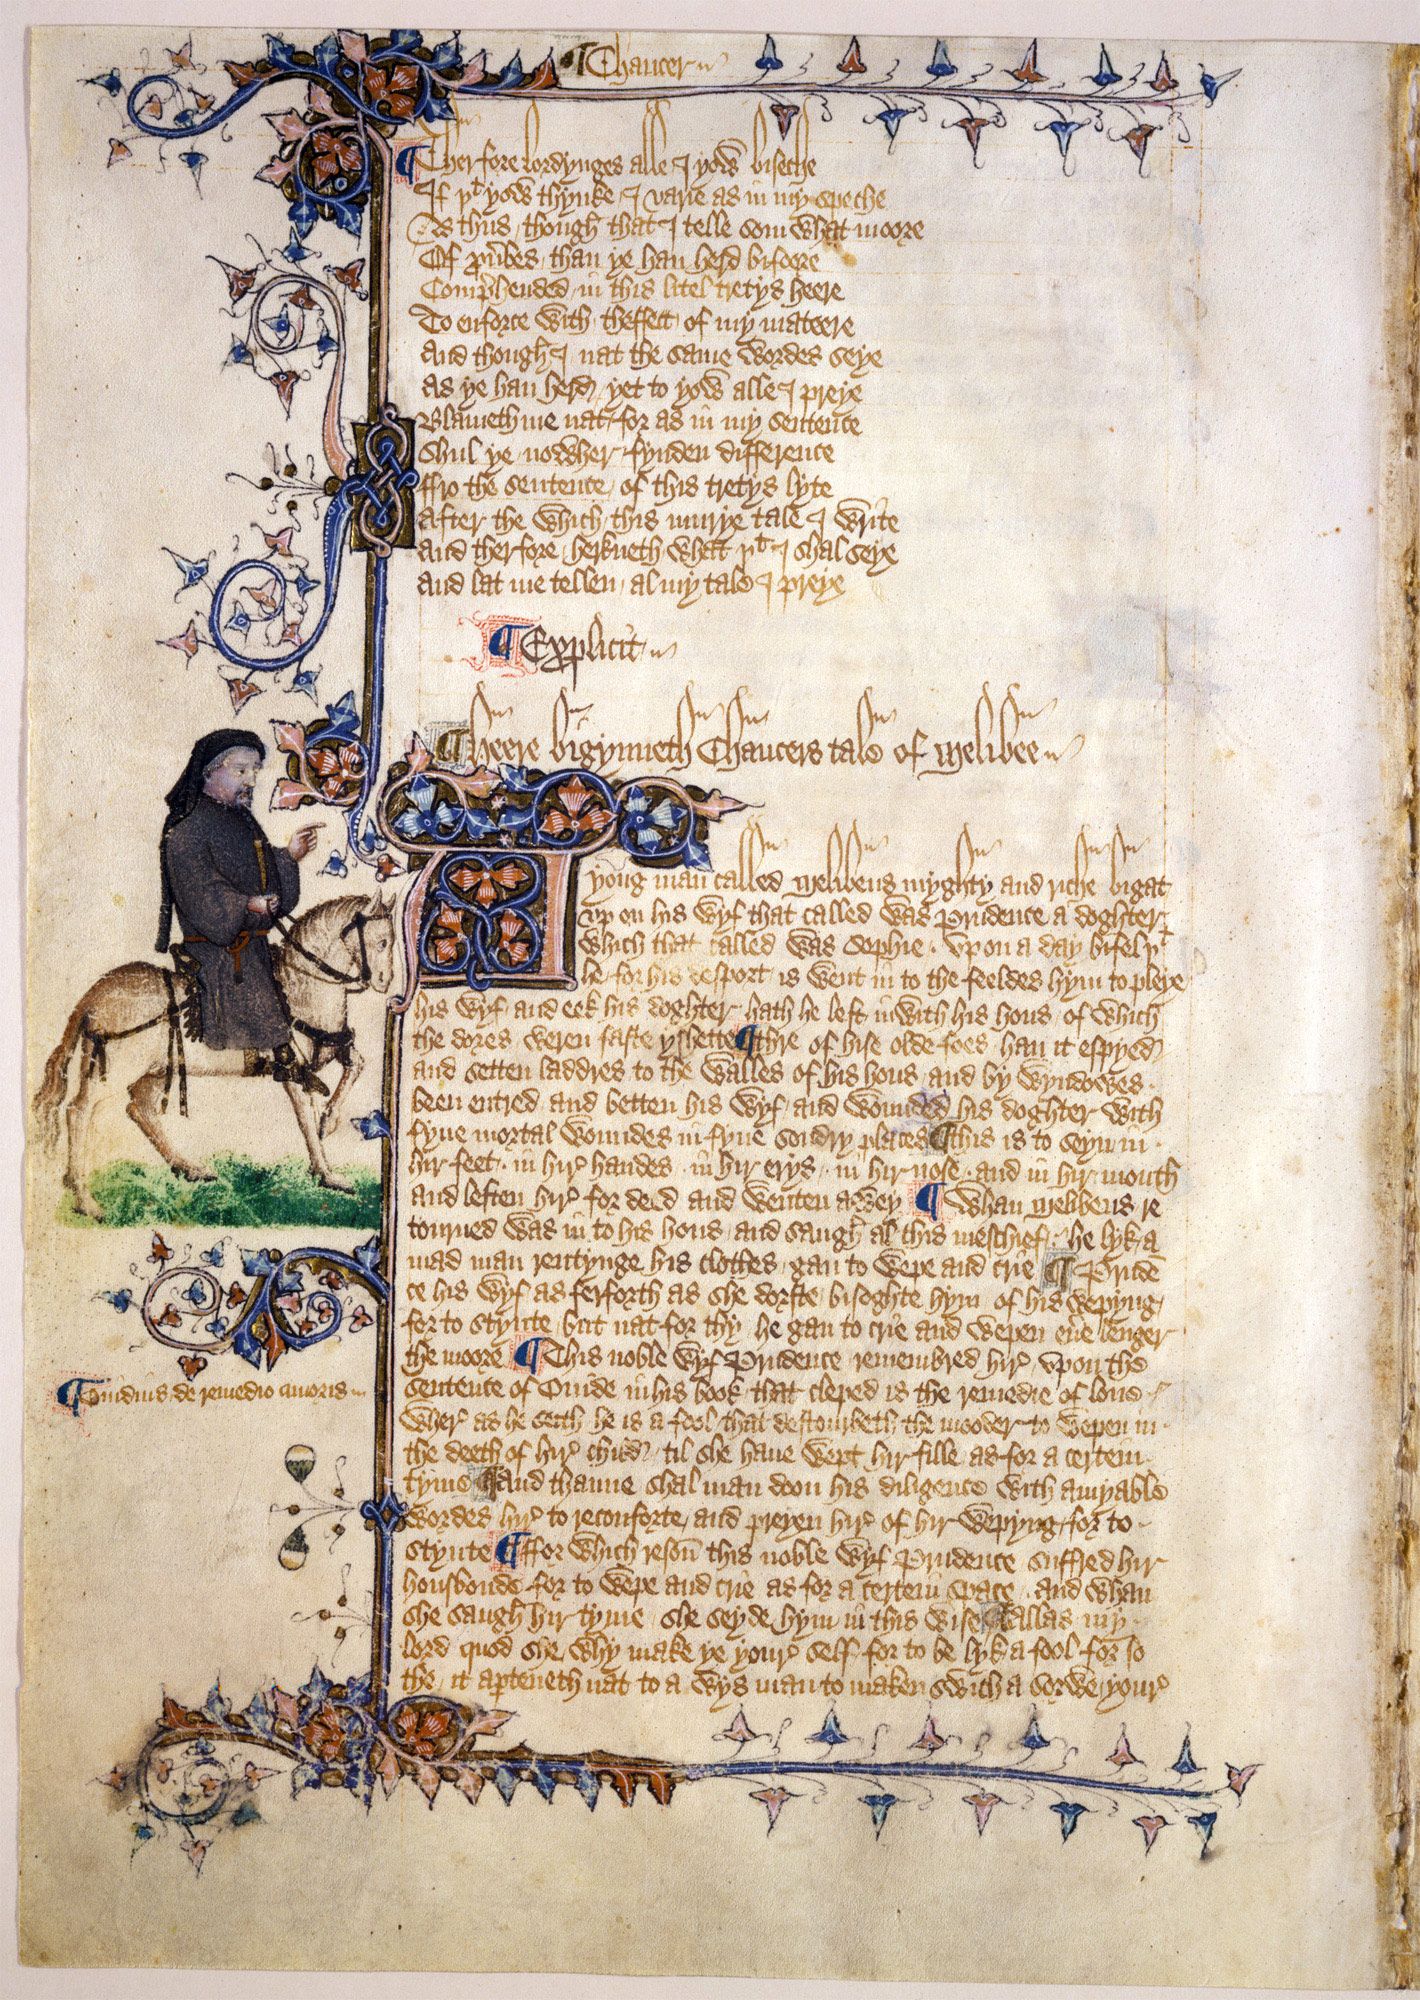 ¶ Chaucer
¶ Therfore lordynges alle I yow biseche
If þt yow thynke I varie as in my speche
As thus though that I telle som what moore
Of prouerbes than ye han herd bifoore
Comprehended in this litel tretys heere
To enforce with theffect of my mateere
And though I nat the same wordes seye
As ye han herd yet to yow alle I preye
Blameth me nat for as in my sentence
Shul ye nowher fynden difference
ffro the sentence of this tretys lyte
After the which this murye tale I write
And therfore herkneth what þt I shal seye
And lat me tellen al my tale I preye
¶ Explicit
¶ Heere bigynneth Chaucers tale of Melibee
A yong man called Melibeus myghty and riche bigat
vp on his wyf that called was Prudence a doghter
which that called was Sophie . vpon a day bifel þt
he for his desport is went in to the feeldes hym to pleye
his wyf and eek his doghter hath he left inwith his hous of which
the dores weren faste yshette ¶ thre of hise olde foes han it espyed
and setten laddres to the walles of his hous and by wyndowes .
been entred and betten his wyf and wounded his doghter with
fyue mortal woundes in fyue sondry places ¶ this is to seyn in .
hir feet . in hir handes . in hir erys . in hir nose . and in hir mouth
and leften hir for deed and wenten awey ¶ Whan Melibeus re
tourned was in to his hous and saugh al this meschief . he lyk a
mad man rentynge his clothes gan to wepe and crie ¶ Pruden
ce his wyf as ferforth as she dorste bisoghte hym of his wepyng
for to stynte but nat for thy he gan to crie and wepen euere lenger
the moore ¶ This noble wyf Prudence remembred hir vpon the
sentence of Ouide in his book that cleped is the remedie of loue
¶ Ouidius de remedio amoris
wher as he seith he is a fool that destourbeth the mooder to wepen in .
the deeth of hir child til she haue wept hir fille as for a certein .
tyme ¶ And thanne shal man doon his diligence with amyable
wordes hir to reconforte and preyen hir of hir wepyng for to .
stynte ¶ ffor which reson this noble wyf Prudence suffred hir
housbonde for to wepe and crie as for a certein space . and whan
she saugh hir tyme she seyde hym in this wise ¶ allas my .
lord quod she why make ye youre self for to be lyk a fool for so
the it aperteneth nat to a wys man to maken swich a sorwe youre